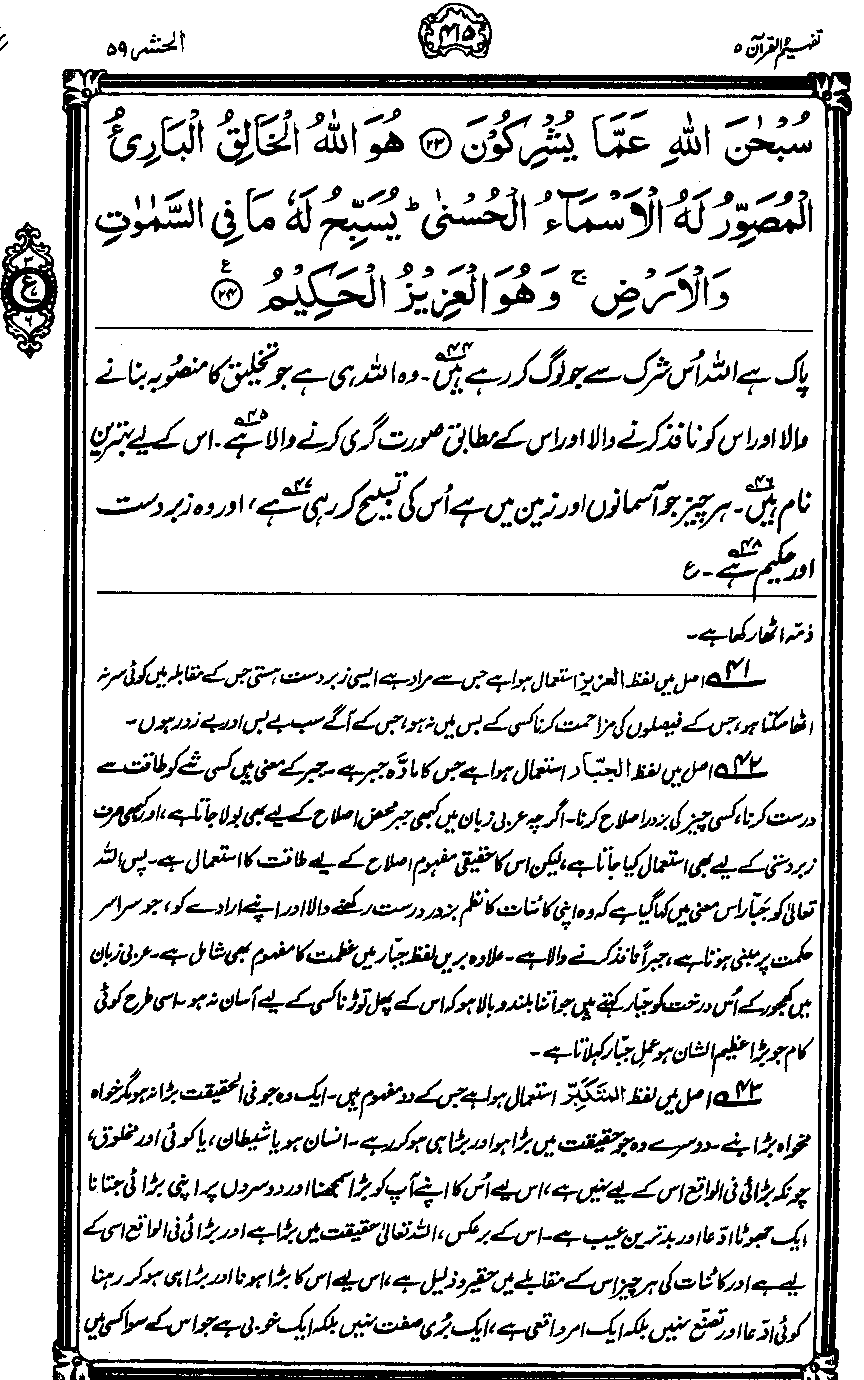 تفہیم القرآن ۵
۴۱۵
الحشر ۵۹
سُبْحٰنَ اللّٰهِ عَمَّا يُشْرِكُوْنَ ﴿۲۳﴾ هُوَ اللّٰهُ الْخَالِقُ الْبَارِئُ
الْمُصَوِّرُ لَهُ الْاَسْمَآءُ الْحُسْنٰى ؕ يُسَبِّحُ لَهٗ مَا فِي السَّمٰوٰتِ
وَالْاَرْضِ ۚ وَهُوَ الْعَزِيْزُ الْحَكِيْمُ ﴿۲۴﴾ ع
۳
ع
۶
پاک ہے اللہ اُس شرک سے جو لوگ کر رہے ہیں۴۴۔ وہ اللہ ہی ہے جو تخلیق کا منصوبہ بنانے
والا اور اس کو نافذ کرنے والا اور اس کے مطابق صورت گری کرنے والا ہے۴۵۔ اس کے لیے بہترین
نام ہیں۴۶۔ ہر چیز جو آسمانوں اور زمین میں ہے اُس کی تسبیح کر رہی ہے۴۷، اور وہ زبردست
اور حکیم ہے۴۸۔ ع
ذمّہ اٹھا رکھا ہے۔
۴۱ اصل میں لفظ العزیز استعمال ہوا ہے جس سے مراد ہے ایسی زبردست ہستی جس کے مقابلہ میں کوئی سر نہ
اٹھا سکتا ہو، جس کے فیصلوں کی مزاحمت کرنا کسی کے بس میں نہ ہو، جس کے آگے سب بے بس اور بے زور ہوں۔
۴۲ اصل میں لفظ الجبّار استعمال ہوا ہے جس کا مادّہ جبر ہے۔ جبر کے معنی ہیں کسی شے کو طاقت سے
درست کرنا، کسی چیز کی بزور اصلاح کرنا۔ اگرچہ عربی زبان میں کبھی جبر محض اصلاح کے لیے بھی بولا جاتا ہے، اور کبھی صرف
زبردستی کے لیے بھی استعمال کیا جاتا ہے، لیکن اس کا حقیقی مفہوم اصلاح کے لیے طاقت کا استعمال ہے۔ پس اللہ
تعالیٰ کو جبّار اس معنی میں کہا گیا ہے کہ وہ اپنی کائنات کا نظم بزور درست رکھنے والا اور اپنے ارادے کو، جو سراسر
حکمت پر مبنی ہوتا ہے، جبراً نافذ کرنے والا ہے۔ علاوہ بریں لفظ جبّار میں عظمت کا مفہوم بھی شامل ہے۔ عربی زبان
میں کھجور کے اُس درخت کو جبّار کہتے ہیں جو اتنا بلند و بالا ہو کہ اس کے پھل توڑنا کسی کے لیے آسان نہ ہو۔ اسی طرح کوئی
کام جو بڑا عظیم الشان ہو عمل جبّار کہلاتا ہے۔
۴۳ اصل میں لفظ المتکبّر استعمال ہوا ہے جس کے دو مفہوم ہیں۔ ایک وہ جو فی الحقیقت بڑا نہ ہو مگر خواہ
مخواہ بڑا بنے۔ دوسرے وہ جو حقیقت میں بڑا ہو اور بڑا ہی ہو کر رہے۔ انسان ہو یا شیطان، یا کوئی اور مخلوق،
چونکہ بڑائی فی الواقع اس کے لیے نہیں ہے، اس لیے اُس کا اپنے آپ کو بڑا سمجھنا اور دوسروں پر اپنی بڑائی جتانا
ایک جھوٹا ادّعا اور بدترین عیب ہے۔ اس کے برعکس، اللہ تعالیٰ حقیقت میں بڑا ہے اور بڑائی فی الواقع اسی کے
لیے ہے اور کائنات کی ہر چیز اس کے مقابلے میں حقیر و ذلیل ہے، اس لیے اس کا بڑا ہونا اور بڑا ہی ہو کر رہنا
کوئی ادّعا اور تصنّع نہیں بلکہ ایک امر واقعی ہے، ایک بُری صفت نہیں بلکہ ایک خوبی ہے جو اس کے سوا کسی میں